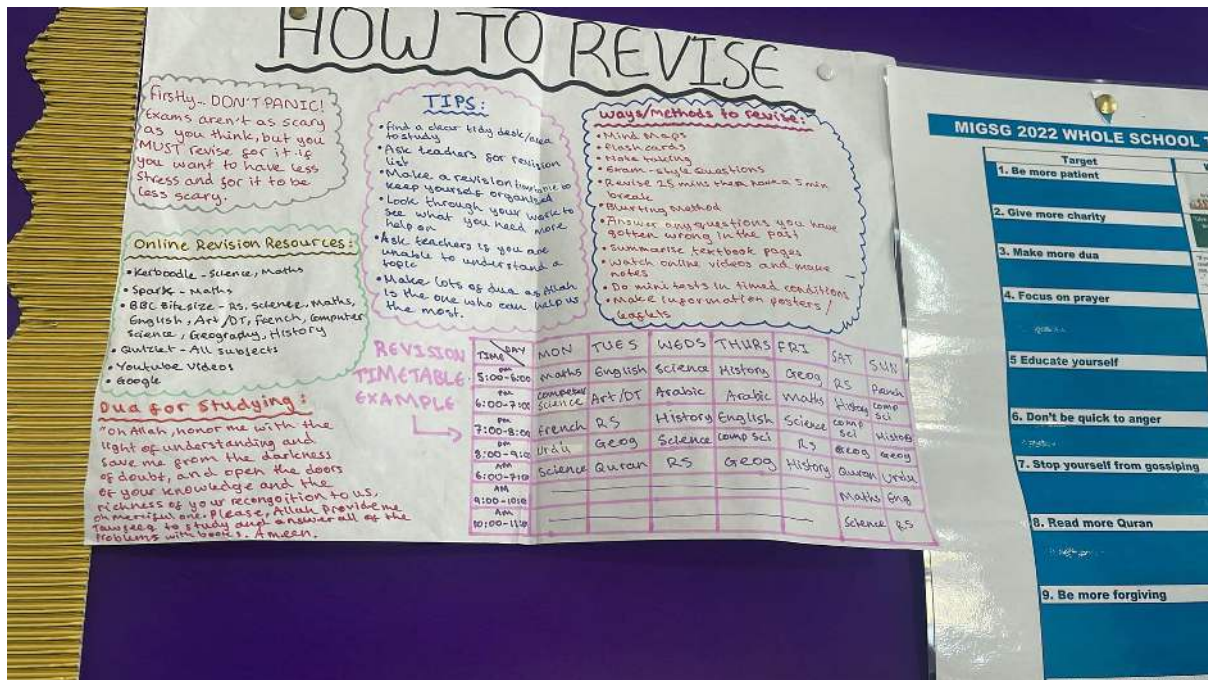 HOW TO REVISE
Firstly... DON'T PANIC!
Exams aren't as scary
as you think, but you
MUST revise for it if
you want to have less
stress and for it to be
less scary.
Online Revision Resources:
• Kerboodle - Science, Maths
• Sparx - Maths
• BBC Bitesize - RS, Science, Maths,
English, Art/DT, French, Computer
Science, Geography, History
• Quizlet - All subjects
• Youtube videos
• Google
Dua for studying:
"Oh Allah, honor me with the
light of understanding and
save me from the darkness
of doubt, and open the doors
of your knowledge and the
richness of your recongoition to us,
oh merciful one. Please, Allah provide me
tawfeeq to study and answer all of the
problems with books. Ameen.
TIPS:
• find a clear tidy desk/area
to study
• Ask teachers for revision
list
• Make a revision timetable to
keep yourself organised
• Look through your work to
see what you need more
help on
• Ask teachers if you are
unable to understand a
topic
• Make lots of dua as Allah
is the one who can help us
the most.
Ways/methods to revise:
• Mind maps
• Flash cards
• Note taking
• Exam-style questions
• Revise 25 mins then have a 5 min
break
• Blurting method
• Answer any questions you have
gotten wrong in the past
• Summarise textbook pages
• Watch online videos and make
notes
• Do mini tests in timed conditions
• Make information posters/
leaflets
REVISION
TIMETABLE
EXAMPLE
TIME DAY MON TUES WEDS THURS FRI SAT SUN
PM 5:00-6:00 Maths English Science History Geog RS French
PM 6:00-7:00 Computer Science Art/DT Arabic Arabic Maths History Comp Sci
PM 7:00-8:00 French RS History English Science Comp Sci History
PM 8:00-9:00 Urdu Geog Science Comp Sci RS Geog Geog
AM 6:00-7:00 Science Quran RS Geog History Quran Urdu
AM 9:00-10:00 Maths Eng
AM 10:00-11:00 Science RS
MIGSG 2022 WHOLE SCHOOL
Target
1. Be more patient
2. Give more charity
3. Make more dua
4. Focus on prayer
5 Educate yourself
6. Don't be quick to anger
7. Stop yourself from gossiping
8. Read more Quran
9. Be more forgiving